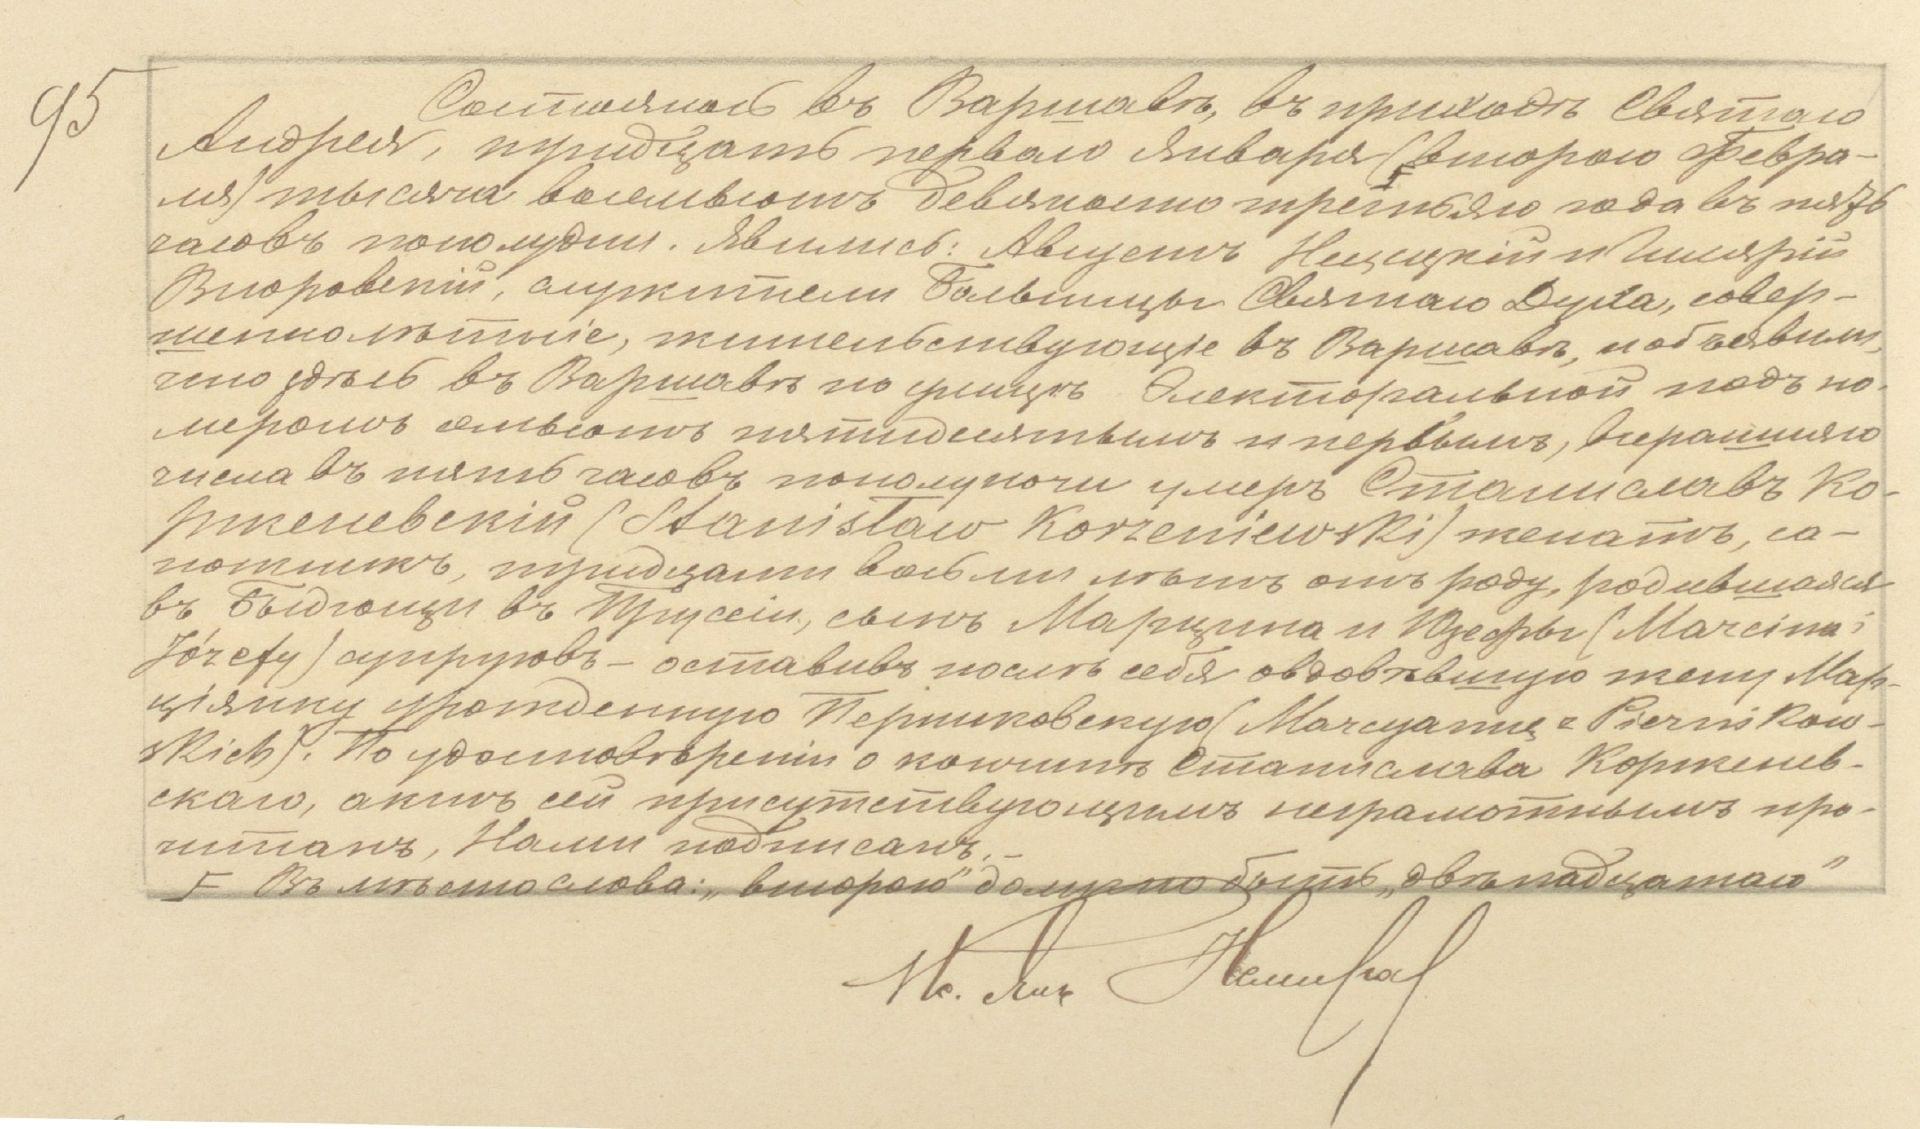 95
Состоялось въ Варшавѣ, въ приходѣ Святаго
Андрея, тридцать перваго Января (F втораго Февра-
ля) тысяча восемьсотъ девяносто третьяго года въ пять
часовъ пополудни. Явились: Августъ и Гиларій
служители Больницы Святаго Духа, совер-
шеннолѣтніе, жительствующіе въ Варшавѣ, и объявили,
что здѣсь въ Варшавѣ по улицѣ Электоральной подъ но-
меромъ семьсотъ пятидесятымъ и первымъ, вчерашняго
числа въ пять часовъ пополуночи умеръ Станиславъ Ко-
рженевскій (Stanisław Korzeniewski) женатъ, са-
пожникъ, тридцати восьми лѣтъ отъ роду, родившійся
въ Быдгощи въ Пруссіи, сынъ Марцина и Юзефы (Marcina i
Józefy) супруговъ – оставивъ послѣ себя овдовѣвшую жену Мар-
ціянну урожденную Перниковскую (Marcyannę z Pierników-
skich). По удостовѣреніи о кончинѣ Станислава Коржнев-
скаго, актъ сей присутствующимъ неграмотнымъ про-
читанъ, Нами подписанъ. –
F Вмѣсто слова: „втораго" должно быть „двѣнадцатаго"